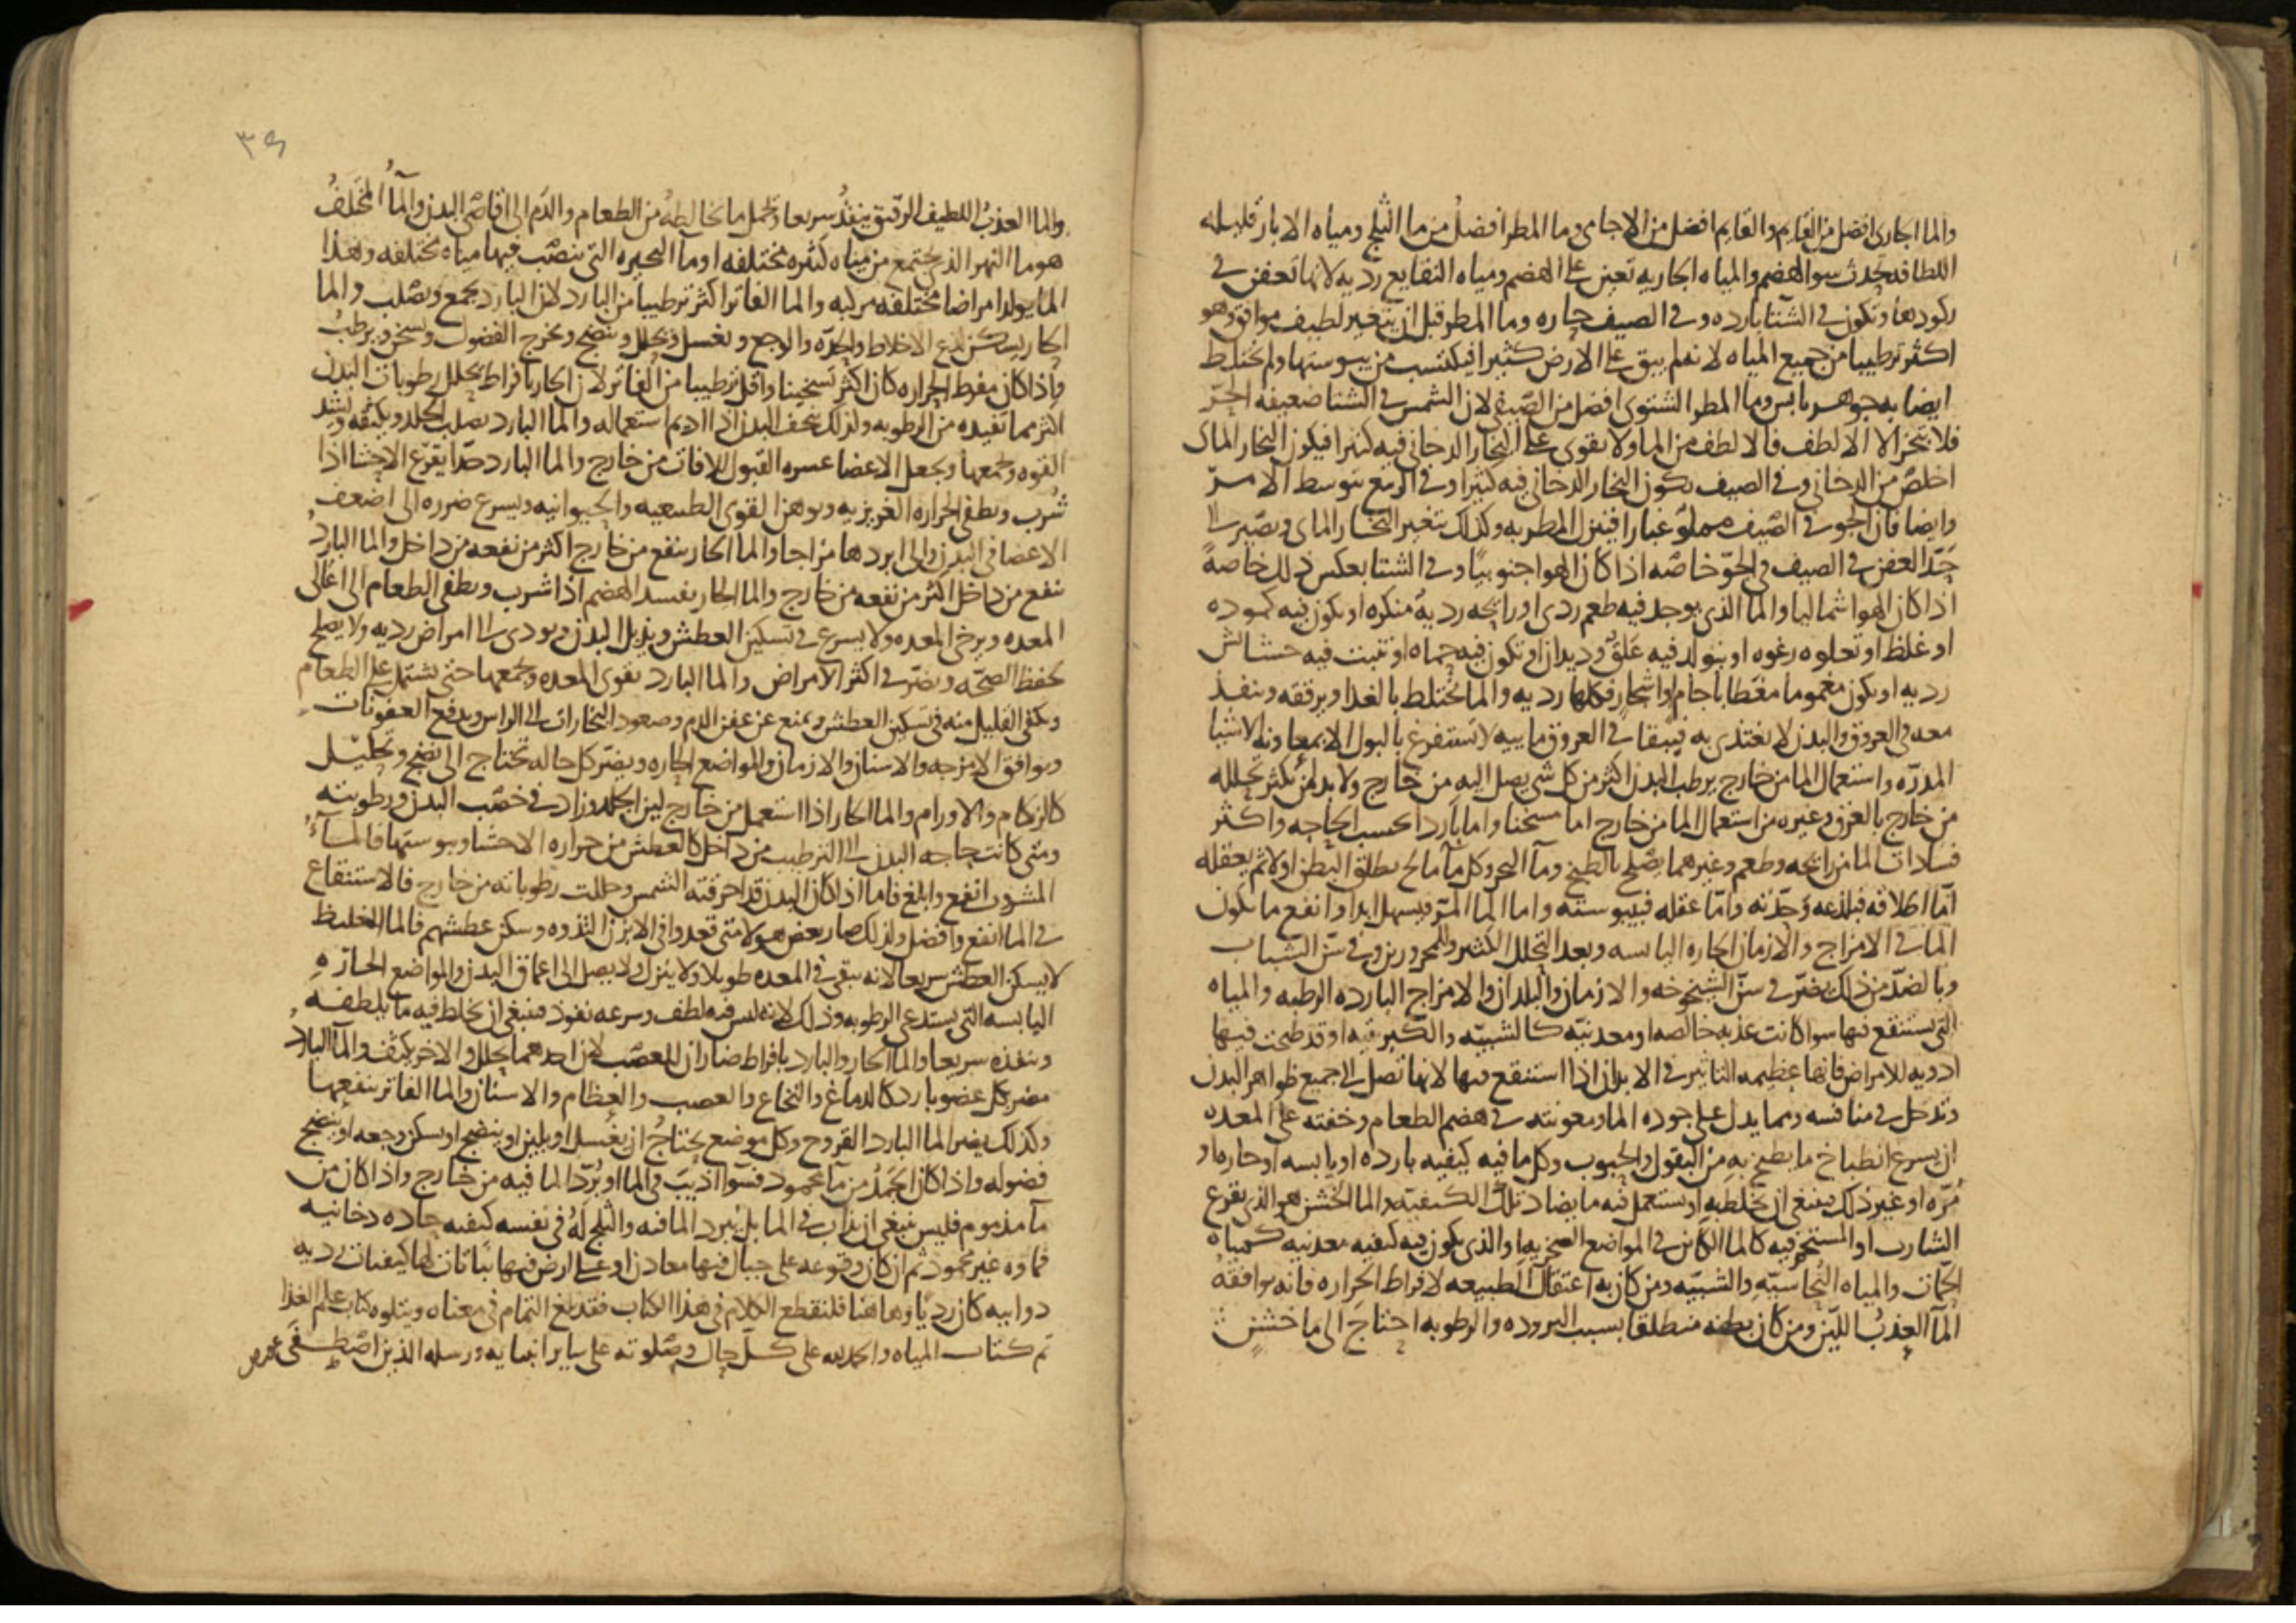 والما الجارى افضل من القايم والقايم افضل من الاجامى وما المطر افضل من ما الثلج ومياه الابار قليله
اللطافه يحدث سو الهضم والمياه الجاريه تعين على الهضم ومياه النقايع رديه لانها تعفن فى
ركودها وتكون فى الشتا بارده وفى الصيف حاره وما المطر قبل ان يتغير لطيف موافق وهو
اكثر ترطيبا من جميع المياه لانه لم يبق على الارض كثيرا فيكتسب من يبوستها ولم يختلط
ايضا به جوهر يابس وما المطر الشتوى افضل من الصيفى لان الشمس فى الشتا ضعيفه الحر
فلا يتبخر الا الالطف فالالطف من الما ولا يقوى على البخار الدخانى فيه كثيرا فيكون البخار الماى
اخلص من الدخانى وفى الصيف يكون البخار الدخانى فيه كثيرا وفى الربيع يتوسط الامر
وايضا فان الجو فى الصيف مملو غبارا فينزل المطر به وكذلك يتغير البخار الماى ويصير الى
حد العفن فى الصيف فى الجو خاصه اذا كان الهوا جنوبيا وفى الشتا بعكس ذلك خاصة
اذا كان الهوا شماليا والما الذى يوجد فيه طعم ردى او رايحه رديه منكره او يكون فيه كموده
او غلظ او تعلوه رغوه او يتولد فيه علق وديدان او تكون فيه حماه او تنبت فيه حشايش
رديه او يكون مغموما مغطا باجام او اشجار فكلها رديه والما يختلط بالغذا ويرققه وينفذ
معه فى العروق والبدن لا يغتذى به فيبقا فى العروق ماييه لا تستفرغ بالبول الا بمعاونه الاشيا
المدره واستعمال الما من خارج يرطب البدن اكثر من كل شى يصل اليه من خارج ولا بد لمن يكثر تحلله
من خارج بالعرق وغيره من استعمال الما من خارج اما مسخنا واما باردا بحسب الحاجه واكثر
فسادات الما من رايحه وطعم وغيرهما يصلح بالطبخ وما البحر وكل ما مالح يطلق البطن اولا ثم يعقله
اما اطلاقه فبلذعه وحدته واما عقله فبيبوسته واما الما المر فيسهل ابدا وانفع ما يكون
الما فى الامزاج والازمان الحاره اليابسه وبعد التحلل الكثير وللمحرورين وفى سن الشباب
وبالضد من ذلك يضر فى سن الشيخوخه والازمان والبلدان والامزاج البارده الرطبه والمياه
التى يستنقع فيها سوا كانت عذبه خالصه او معدنيه كالشبيه والكبريتيه او قد طبخت فيها
ادويه للامراض فانها عظيمه التاثير فى الابدان اذا استنقع فيها لانها تصل الى جميع ظواهر البدن
وتدخل فى منافسه ومما يدل على جوده الما ومعونته فى هضم الطعام وخفته على المعده
ان يسرع انطباخ ما يطبخ به من البقول والحبوب وكل ما فيه كيفيه بارده او يابسه او حاره او
مره او غير ذلك فينبغى ان يخلط به او يستعمل فيه ما يضاد تلك الكيفيه والما الخشن هو الذى يقرع
الشارب او المستحم فيه كالما الكاين فى المواضع الصخريه او الذى يكون فيه كيفيه معدنيه كمياه
الحمات والمياه النحاسيه والشبيه ومن كان به اعتقال الطبيعه لافراط الحراره فانه يوافقه
الما العذب اللين ومن كان بطنه منطلقا بسبب البروده والرطوبه احتاج الى ما خشن
والما العذب اللطيف الرقيق ينفذ سريعا ويحمل ما يخالطه من الطعام والدم الى اقاصى البدن والما المختلف
هو ما النهر الذى يجتمع من مياه كثيره مختلفه او ما البحيره التى ينصب فيها مياه مختلفه وهذا
الما يولد امراضا مختلفه مركبه والما الفاتر اكثر ترطيبا من البارد لان البارد يجمع ويصلب والما
الحار يسكن لذع الاخلاط والحده والوجع ويغسل ويحلل وينضج ويخرج الفضول ويسخن ويرطب
واذا كان مفرط الحراره كان اكثر تسخينا واقل ترطيبا من الفاتر لان الحار بافراط يحلل رطوبات البدن
اكثر مما تفيده من الرطوبه ولذلك ينحف البدن اذا اديم استعماله والما البارد يصلب الجلد ويكثفه ويشد
القوه ويجمعها ويجعل الاعضا عسره القبول للافات من خارج والما البارد جدا يقرع الاحشا اذا
شرب ويطفى الحراره الغريزيه ويوهن القوى الطبيعيه والحيوانيه ويسرع ضرره الى اضعف
الاعضا فى البدن والى ابردها مزاجا والما الحار ينفع من خارج اكثر من نفعه من داخل والما البارد
ينفع من داخل اكثر من نفعه من خارج والما الحار يفسد الهضم اذا شرب ويطفى الطعام الى اعالى
المعده ويرخى المعده ولا يسرع فى تسكين العطش ويذبل البدن ويودى الى امراض رديه ولا يصلح
لحفظ الصحه ويضر فى اكثر الامراض والما البارد يقوى المعده ويجمعها حتى يشتمل على الطعام
ويكفى القليل منه فى تسكين العطش ويمنع عن عفن الدم وصعود البخارات الى الراس ويدفع العفونات
ويوافق الامزجه والاسنان والازمان والمواضع الحاره ويضر كل حاله تحتاج الى نضج وتحليل
كالزكام والاورام والما الحار اذا استعمل من خارج لين الجلد وزاد فى خصب البدن ورطوبته
ومتى كانت حاجه البدن الى الترطيب من داخل كالعطش من حراره الاحشا ويبوستها فالما
المشروب انفع وابلغ فاما اذا كان البدن قد احرقته الشمس وحللت رطوباته من خارج فالاستنقاع
فى الما انفع وافضل ولذلك صار بعض هولا متى قعدوا فى الابزن التذوه وسكن عطشهم فالما الغليظ
لا يسكن العطش سريعا لانه يبقى فى المعده طويلا ولا ينزل ولا يصل الى اعماق البدن والمواضع الحاره
اليابسه التى يستدعى الرطوبه وذلك لانه ليس فيه لطف وسرعه نفوذ فينبغى ان يخلط فيه ما يلطفه
وينفذه سريعا والما الحار والبارد بافراط ضاران للعصب لان احدهما يحلل والاخر يكثف والما البارد
مضر بكل عضو بارد كالدماغ والنخاع والعصب والعظام والاسنان والما الفاتر ينفعها
وكذلك يضر الما البارد القروح وكل موضع يحتاج ان يغسل او يلين او ينضج او يسكن وجعه او ينضج
فضوله واذا كان الجمد من ما محمود فسوا اذيب فى الما او برد الما فيه من خارج واذا كان من
ما مذموم فليس ينبغى ان يذاب فى الما بل يبرد الما فيه والثلج له فى نفسه كيفيه حاده دخانيه
فماوه غير محمود ثم ان كان وقوعه على جبال فيها معادن او على ارض فيها نباتات لها كيفيات رديه
دواييه كان رديا وهاهنا فلنقطع الكلام فى هذا الكتاب فقد بلغ التمام فى معناه ويتلوه كتاب علم الغذا
تم كتاب المياه والحمد لله على كل حال وصلوته على ساير انبيايه ورسله الذين اصطفى